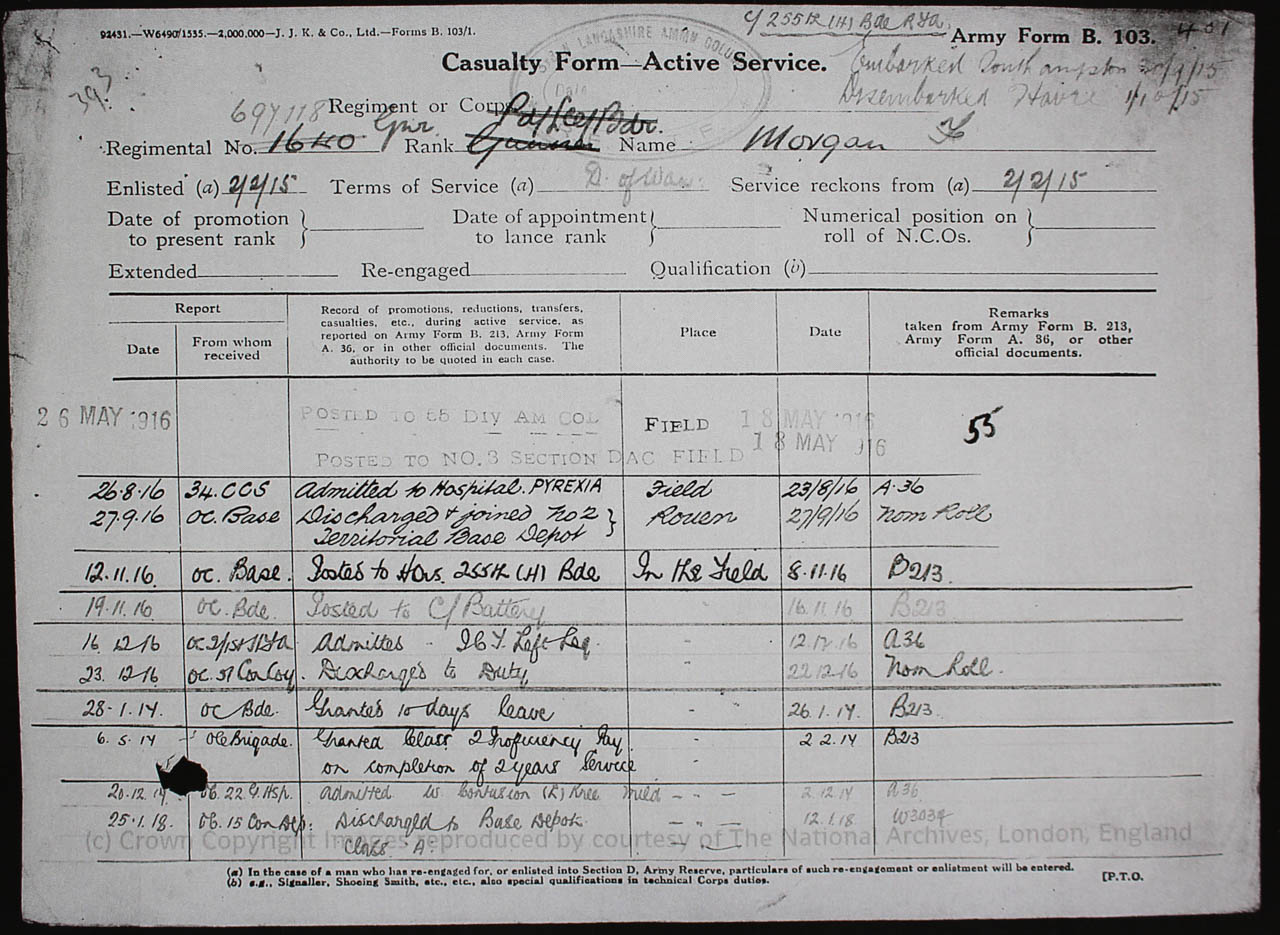 92431.—W6490/1535.—2,000,000—J. J. K. & Co., Ltd.—Forms B. 103/1.
C/255th (H) Bde RFA
Army Form B. 103.
393
Casualty Form—Active Service.
Embarked Southampton 30/9/15
Disembarked Havre 1/10/15
LANCASHIRE AMMN COLUMN
697118 Regiment or Corps
Gnr. Pd/Lce/Bdr.
Regimental No. 1640 Rank Gunner Name Morgan
Enlisted (a) 2/2/15 Terms of Service (a) D. of War. Service reckons from (a) 2/2/15
Date of promotion to present rank
Date of appointment to lance rank
Numerical position on roll of N.C.Os.
Extended Re-engaged Qualification (b)
Report
Date
From whom received
Record of promotions, reductions, transfers, casualties, etc., during active service, as reported on Army Form B. 213, Army Form A. 36, or in other official documents. The authority to be quoted in each case.
Place
Date
Remarks taken from Army Form B. 213, Army Form A. 36, or other official documents.
26 MAY 1916 POSTED TO 55 DIV AM COL FIELD 18 MAY 1916 55
POSTED TO NO. 3 SECTION DAC FIELD 18 MAY 1916
26.8.16 34.CCS Admitted to Hospital. PYREXIA Field 23/8/16 A.36
27.9.16 OC. Base Discharged & joined No 2 Territorial Base Depot Rouen 27/9/16 Nom Roll
12.11.16. OC. Base. Posted to Hows. 255th (H) Bde In the Field 8.11.16 B213.
19.11.16 OC. Bde. Posted to C/Battery " 16.11.16 B213
16.12.16 Admitted - I.C.T. Left Leg. " 12.12.16 A36
23.12.16 OC. 51 Con Coy. Discharged to Duty " 22.12.16 Nom Roll.
28.1.17. OC Bde. Granted 10 days leave - " 26.1.17. B213.
6.5.17 OC Brigade. Granted Class 2 Proficiency Pay on completion of 2 years Service " 2.2.17 B213
20.12.17 OC. 22 G. Hsp. Admitted W. Contusion (R) Knee mild - " - 2.12.17 A36
25.1.18. OC. 15 Con Dep. Discharged to Base Depot - " - 12.1.18 W3034
Class A.
(c) Crown Copyright Images reproduced by courtesy of The National Archives, London, England
(a) In the case of a man who has re-engaged for, or enlisted into Section D, Army Reserve, particulars of such re-engagement or enlistment will be entered.
(b) e.g., Signaller, Shoeing Smith, etc., etc., also special qualifications in technical Corps duties.
[P.T.O.